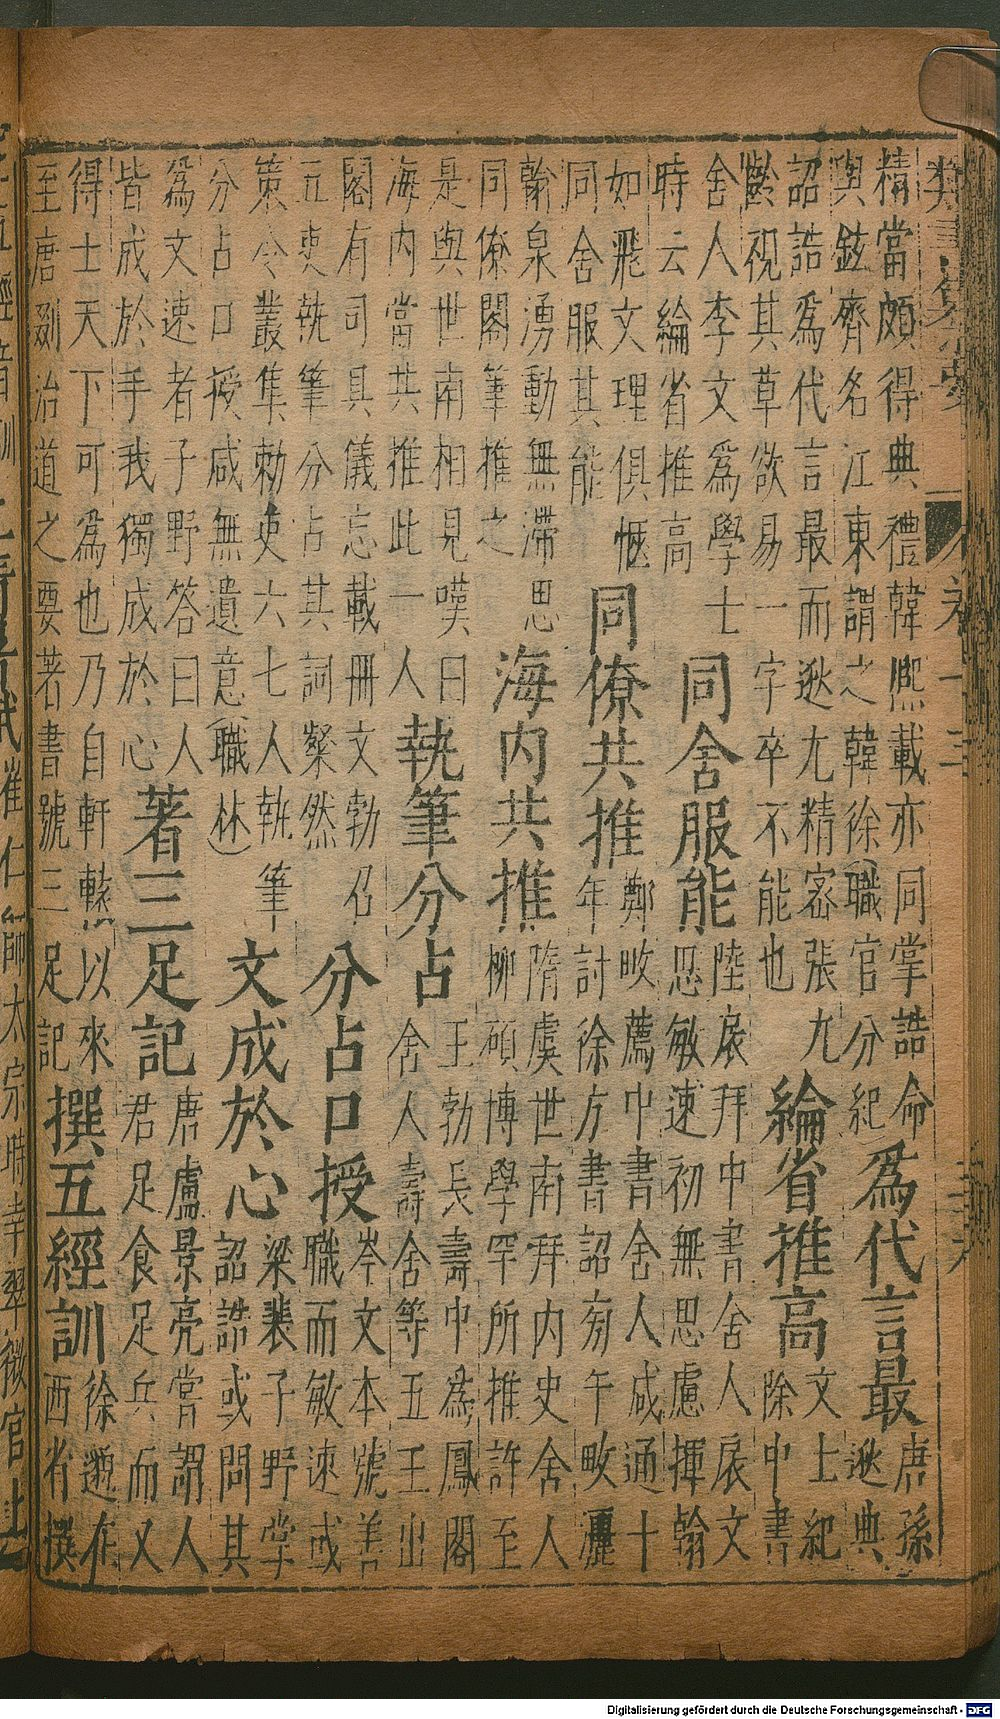 類書纂要
精當頗得典禮韓熙載亦同掌誥命
與鉉齊名江東謂之韓徐(職官分紀
爲代言最
唐孫
逖典
詔誥爲代言最而逖尤精密張九
齡視其草欲易一字卒不能也
綸省推高
文上紀
除中書
舍人李文爲學士
時云綸省推高
同舍服能
陸扆拜中書舍人扆文
思敏速初無思慮揮翰
如飛文理俱愜
同舍服其能
同僚共推
鄭畋薦中書舍人咸通十
年討徐方書詔旁午畋灑
翰泉湧動無滯思
同僚閣筆推之
海内共推
隋虞世南拜内史舍人
柳碩博學罕所推許至
是與世南相見嘆曰
海内當共推此一人
執筆分占
王勃長壽中爲鳳閣
舍人壽舍等五王出
閣有司具儀忘載冊文勃召
五吏執筆分占其詞粲然
分占口授
岑文本號善
職而敏速或
策令叢集勅吏六七人執筆
分占口授咸無遺意(職林)
文成於心
梁裴子野掌
詔誥或問其
爲文速者子野答曰人
皆成於手我獨成於心
著三足記
唐盧景亮嘗謂人
君足食足兵而又
得士天下可爲也乃自軒轅以來
至唐剟治道之要著書號三足記
撰五經訓
徐遯在
西省撰
崔仁師太宗時幸翠微宮上
Digitalisierung gefördert durch die Deutsche Forschungsgemeinschaft - DFG